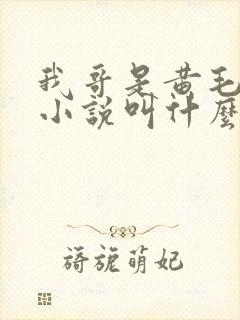 我哥是黄毛
小說叫什麼
旖旎萌妃